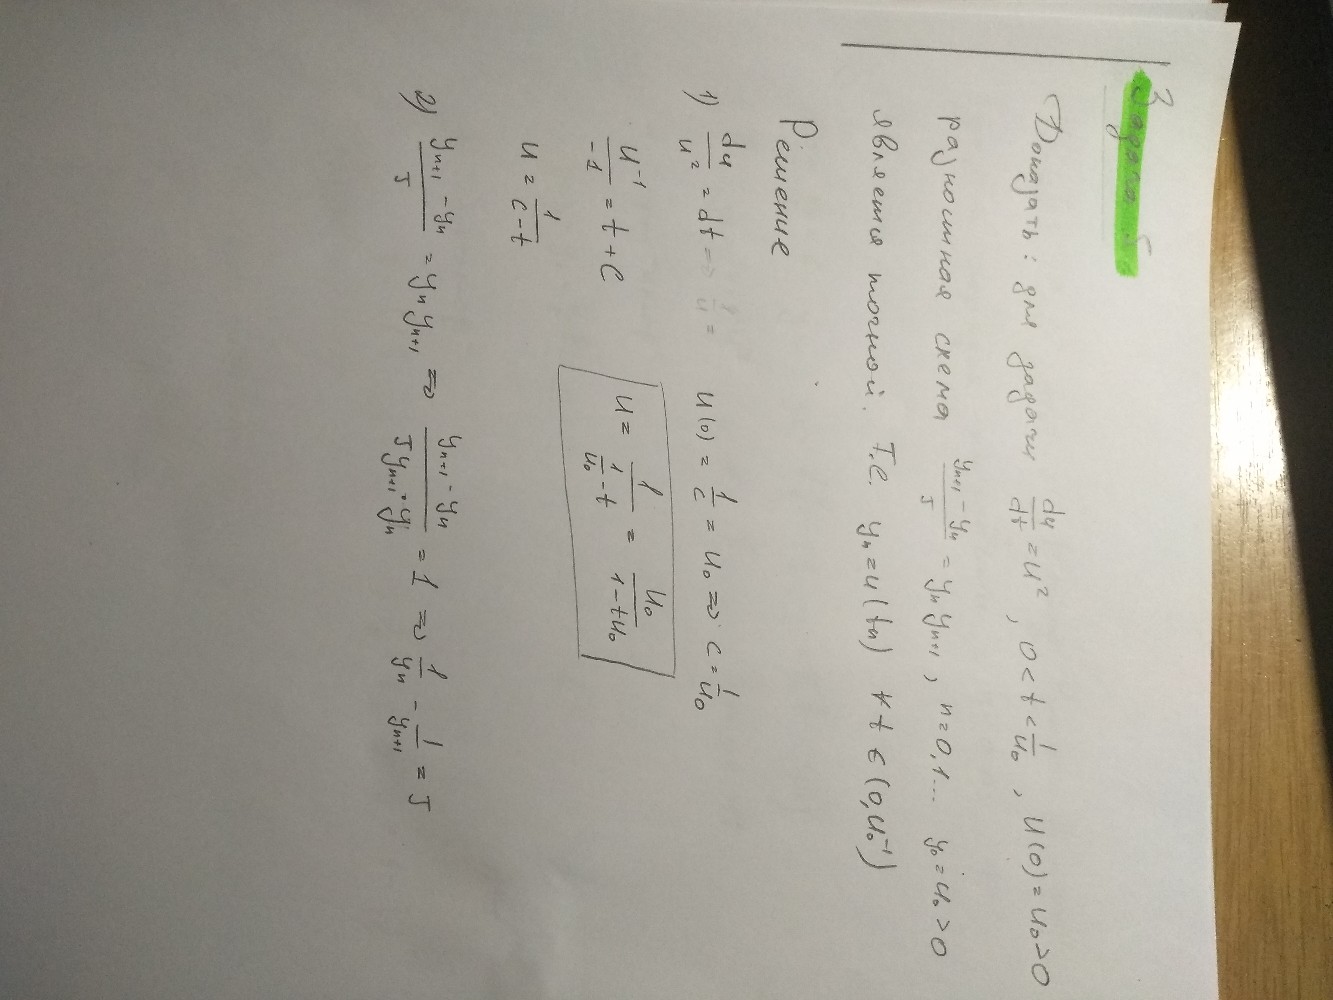 Задача 5.
Доказать: для задачи du/dt = u², 0 < t < 1/u₀, u(0) = u₀ > 0
разностная схема (yₙ₊₁ - yₙ)/τ = yₙ yₙ₊₁, n = 0,1... y₀ = u₀ > 0
является точной. Т.е. yₙ = u(tₙ) ∀ t ∈ (0, u₀⁻¹)
Решение
1) du/u² = dt => 1/u = u(0) = 1/c = u₀ => c = 1/u₀
u⁻¹/-1 = t + C
u = 1/(1/u₀ - t) = u₀/(1 - tu₀)
u = 1/(c - t)
2) (yₙ₊₁ - yₙ)/τ = yₙ yₙ₊₁ => (yₙ₊₁ - yₙ)/(τ yₙ₊₁ · yₙ) = 1 => 1/yₙ - 1/yₙ₊₁ = τ